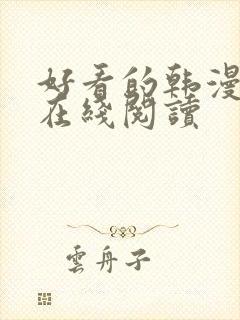 好看的韩漫
在綫閱讀
雲舟子